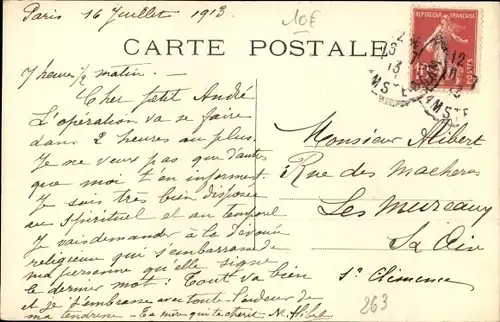 Paris 16 Juillet 1913
10€
CARTE POSTALE
REPUBLIQUE FRANÇAISE
10
POSTES
7 heures ½ matin.
Cher petit André
L'opération va se faire
dans 2 heures au plus.
Je ne veux pas que d'autres
que moi t'en informent.
Je suis très bien disposée
au spirituel et au temporel
Je vais demander à la dévouée
religieuse qui s'embarrasse de
ma personne qu'elle signe
le dernier mot: Tout va bien
et je t'embrasse avec toute l'ardeur de
ma tendresse - Ta mère qui te chérit N. Alibert
Monsieur Alibert
Rue des
Les Mureaux
S. Oise
Sr Clémence
263